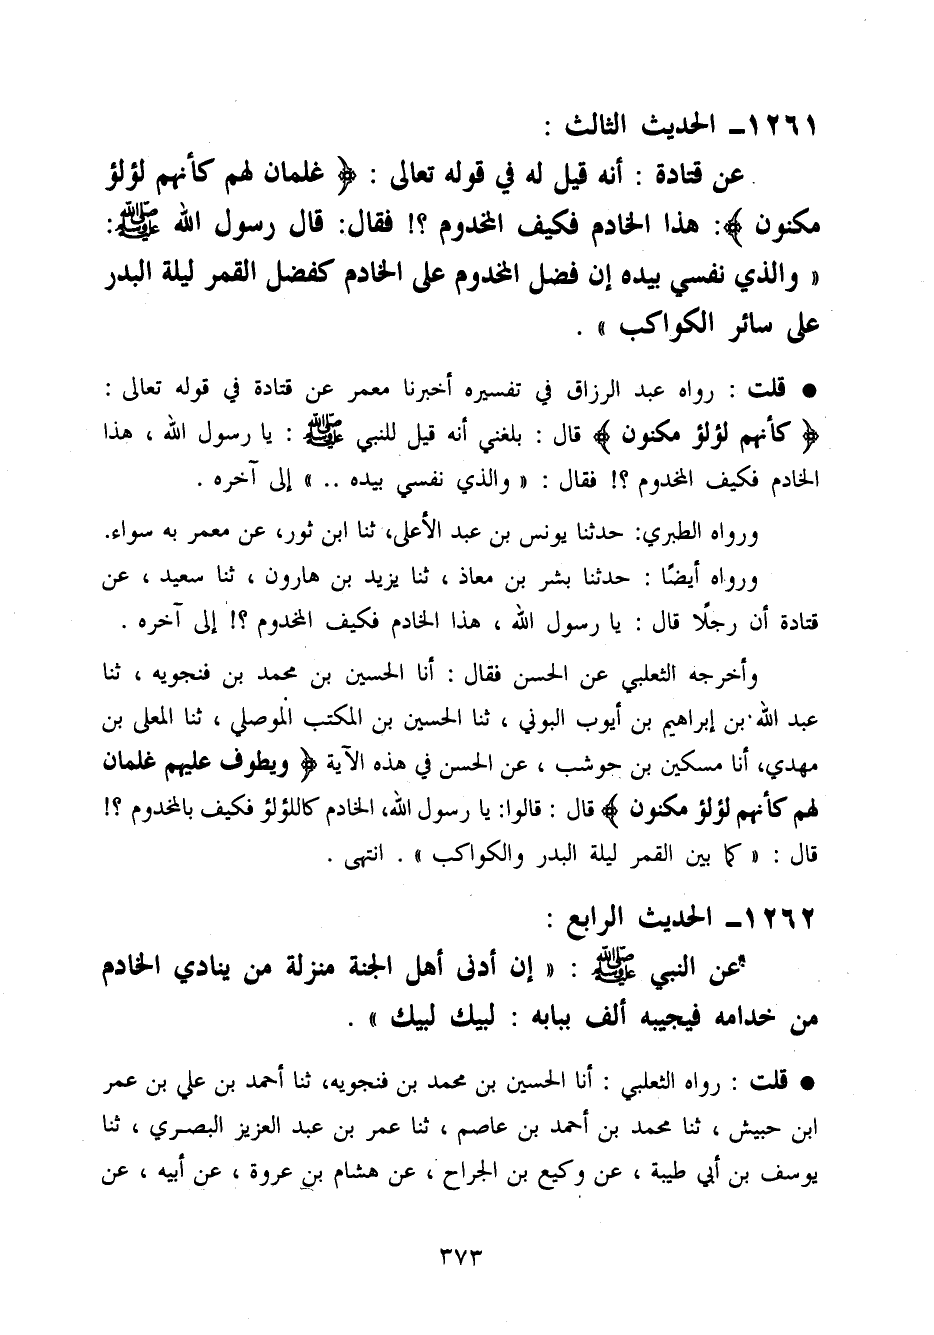 ١٢٦١ـ الحديث الثالث :
عن قتادة : أنه قيل له في قوله تعالى : ﴿ غلمان لهم كأنهم لؤلؤ
مكنون ﴾: هذا الخادم فكيف المخدوم ؟! فقال: قال رسول الله ﷺ:
« والذي نفسي بيده إن فضل المخدوم على الخادم كفضل القمر ليلة البدر
على سائر الكواكب » .
● قلت : رواه عبد الرزاق في تفسيره أخبرنا معمر عن قتادة في قوله تعالى :
﴿ كأنهم لؤلؤ مكنون ﴾ قال : بلغني أنه قيل للنبي ﷺ : يا رسول الله ، هذا
الخادم فكيف المخدوم ؟! فقال : « والذي نفسي بيده .. » إلى آخره .
ورواه الطبري: حدثنا يونس بن عبد الأعلى، ثنا ابن ثور، عن معمر به سواء.
ورواه أيضًا : حدثنا بشر بن معاذ ، ثنا يزيد بن هارون ، ثنا سعيد ، عن
قتادة أن رجلًا قال : يا رسول الله ، هذا الخادم فكيف المخدوم ؟! إلى آخره .
وأخرجه الثعلبي عن الحسن فقال : أنا الحسين بن محمد بن فنجويه ، ثنا
عبد الله بن إبراهيم بن أيوب البوني ، ثنا الحسين بن المكتب الموصلي ، ثنا المعلى بن
مهدي، أنا مسكين بن حوشب ، عن الحسن في هذه الآية ﴿ ويطوف عليهم غلمان
لهم كأنهم لؤلؤ مكنون ﴾ قال : قالوا: يا رسول الله، الخادم كاللؤلؤ فكيف بالمخدوم ؟!
قال : « كما بين القمر ليلة البدر والكواكب » . انتهى .
١٢٦٢ـ الحديث الرابع :
عن النبي ﷺ : « إن أدنى أهل الجنة منزلة من ينادي الخادم
من خدامه فيجيبه ألف ببابه : لبيك لبيك » .
● قلت : رواه الثعلبي : أنا الحسين بن محمد بن فنجويه، ثنا أحمد بن علي بن عمر
ابن حبيش ، ثنا محمد بن أحمد بن عاصم ، ثنا عمر بن عبد العزيز البصري ، ثنا
يوسف بن أبي طيبة ، عن وكيع بن الجراح ، عن هشام بن عروة ، عن أبيه ، عن
٣٧٣